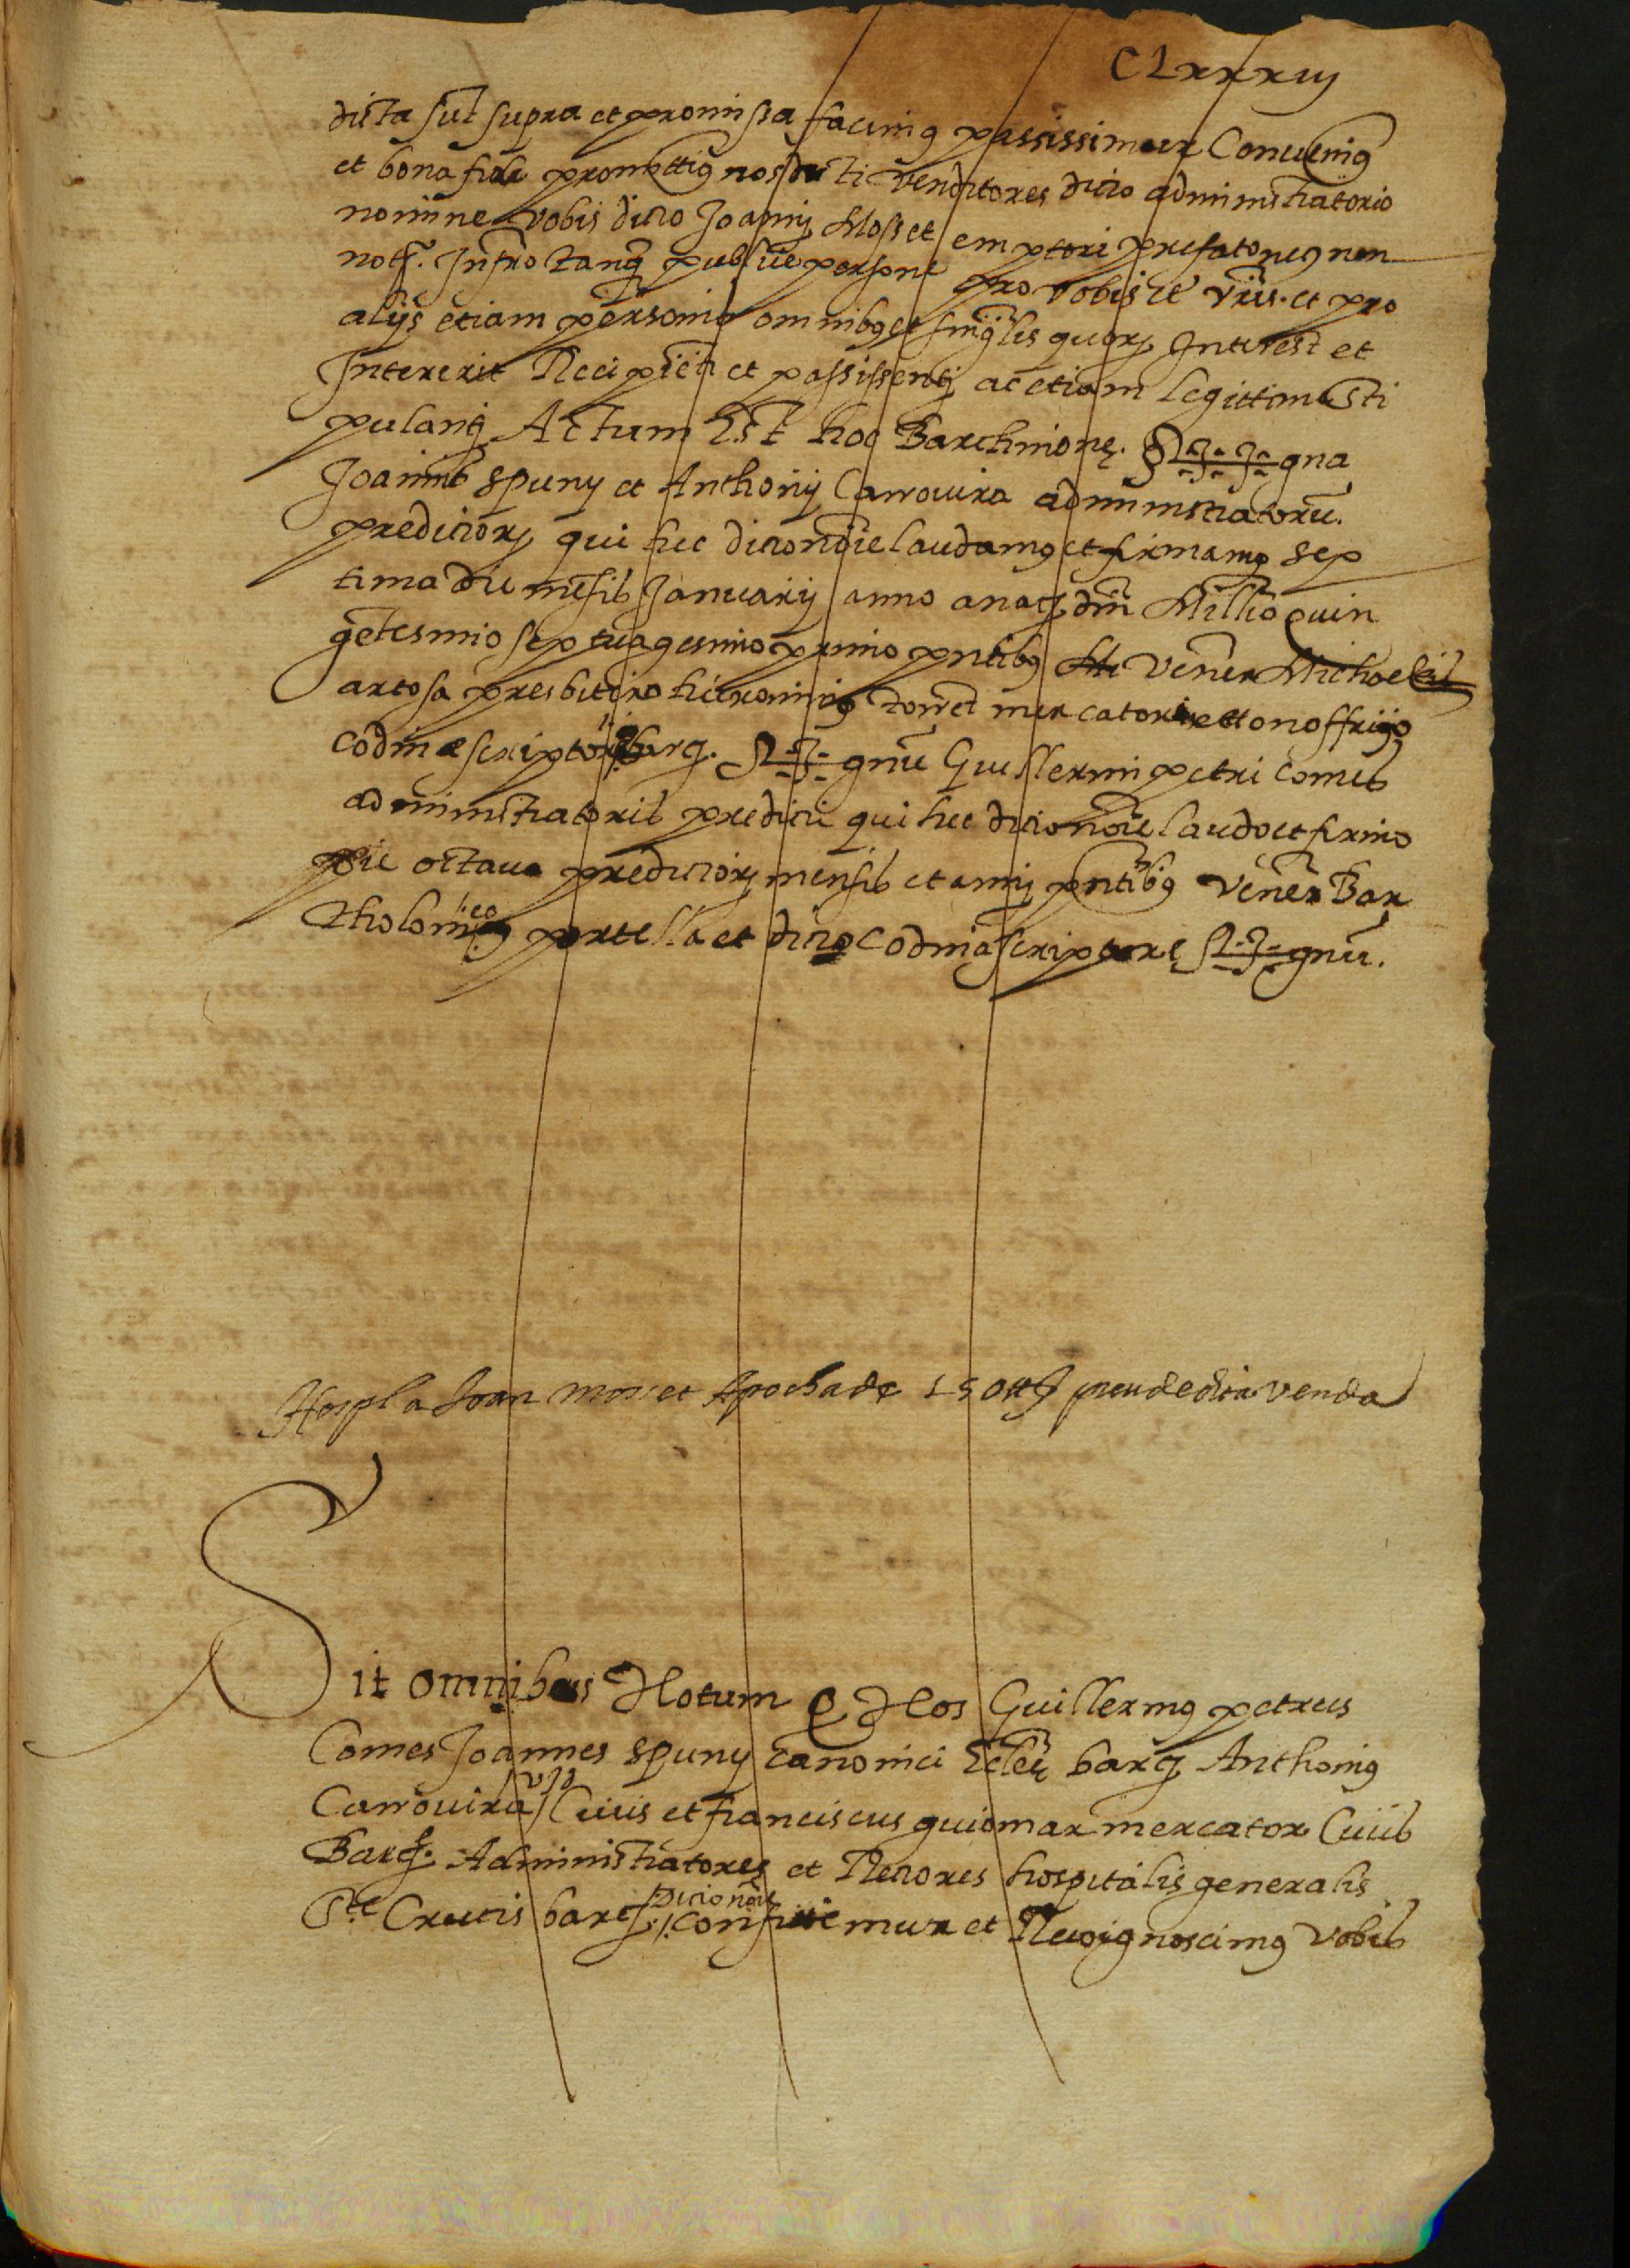 CLxxxiij
dicta sut supra et promissa facimg passissimur Convenimg
et bona fide promittimg nos dicti venditores dicto administratorio
nomine vobis dicto Joanni Mosset emptori prefato necg non
notr. Infro tanq publice persone pro vobis et vris. et pro
alijs etiam personis omnibg et singlis quorz Interest et
Intererit Recipien et passissenti ac etiam legittime sti
pulanti Actum Est hoc Barchinone. Signa
Joannis spuny et Anthonij Carrovira administratoru.
predictorz qui hec dicto noie laudamg et firmamg sep
tima die mesis Januarij anno a nate dni Millio quin
getesmio septuagesimo primo pntibg Vener Michaele
artosa presbitero hieronimo torrent mercatori et onoffrijo
codina scriptoribg barq. Signu Guillermi petri Comes
administratoris predicti qui hec dicto noie laudo et firmo
die octava predictorz mensis et anni pntibg Vener Bar
tholomeo portella et dicto codina scriptore Signu.
Hospl a Joan mosset Apocha de 150 preu de dita venda
Sit omnibus Notum Q Nos Guillermg petrus
Comes Joannes spuny canonici Eccle barq Anthonig
Carrovira Civis et franciscus guiomar mercator Civis
Barq. Administratores et Rectores hospitalis generalis
Ste Crucis barq. Dicto noie confitemur et Recognoscimg vobis